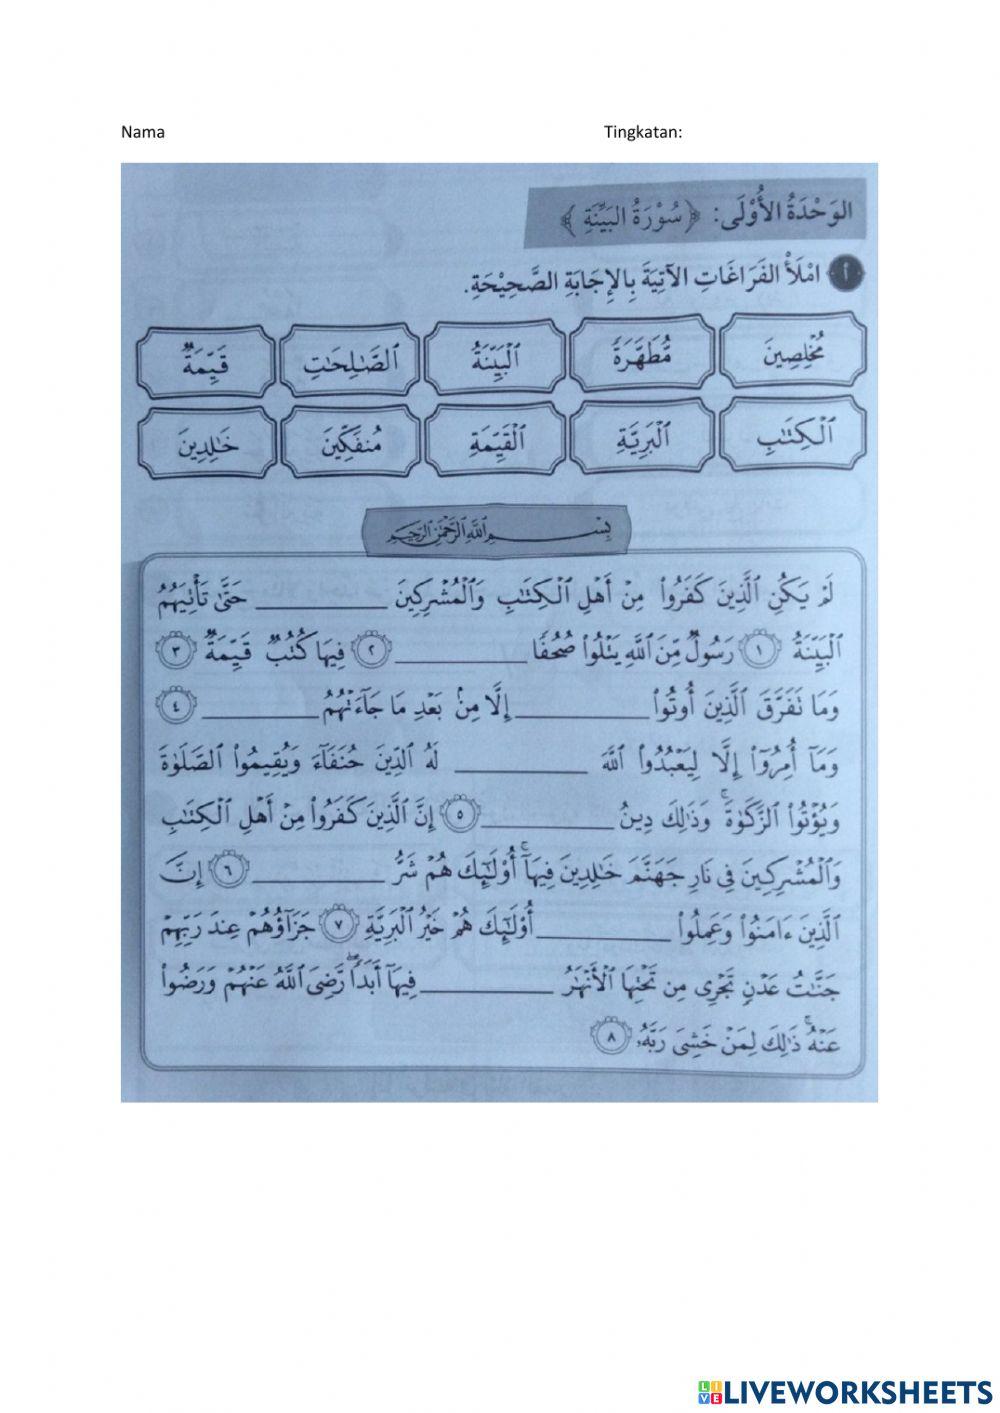 Nama Tingkatan:
الوَحْدَةُ الأُوْلَى: ﴿سُوْرَةُ البَيِّنَةِ﴾
أ امْلَأْ الفَرَاغَاتِ الآتِيَةَ بِالإِجَابَةِ الصَّحِيْحَةِ.
مُخْلِصِينَ مُّطَهَّرَةً ٱلْبَيِّنَةُ ٱلصَّـٰلِحَـٰتِ قَيِّمَةٌ
ٱلْكِتَـٰبَ ٱلْبَرِيَّةِ ٱلْقَيِّمَةِ مُنفَكِّينَ خَـٰلِدِينَ
بِسْمِ ٱللَّهِ ٱلرَّحْمَـٰنِ ٱلرَّحِيمِ
لَمْ يَكُنِ ٱلَّذِينَ كَفَرُوا۟ مِنْ أَهْلِ ٱلْكِتَـٰبِ وَٱلْمُشْرِكِينَ ________ حَتَّىٰ تَأْتِيَهُمُ
ٱلْبَيِّنَةُ ١ رَسُولٌ مِّنَ ٱللَّهِ يَتْلُوا۟ صُحُفًا ________ ٢ فِيهَا كُتُبٌ قَيِّمَةٌ ٣
وَمَا تَفَرَّقَ ٱلَّذِينَ أُوتُوا۟ ________ إِلَّا مِنۢ بَعْدِ مَا جَآءَتْهُمُ ________ ٤
وَمَآ أُمِرُوٓا۟ إِلَّا لِيَعْبُدُوا۟ ٱللَّهَ ________ لَهُ ٱلدِّينَ حُنَفَآءَ وَيُقِيمُوا۟ ٱلصَّلَوٰةَ
وَيُؤْتُوا۟ ٱلزَّكَوٰةَ ۚ وَذَٰلِكَ دِينُ ________ ٥ إِنَّ ٱلَّذِينَ كَفَرُوا۟ مِنْ أَهْلِ ٱلْكِتَـٰبِ
وَٱلْمُشْرِكِينَ فِى نَارِ جَهَنَّمَ خَـٰلِدِينَ فِيهَآ ۚ أُو۟لَـٰٓئِكَ هُمْ شَرُّ ________ ٦ إِنَّ
ٱلَّذِينَ ءَامَنُوا۟ وَعَمِلُوا۟ ________ أُو۟لَـٰٓئِكَ هُمْ خَيْرُ ٱلْبَرِيَّةِ ٧ جَزَآؤُهُمْ عِندَ رَبِّهِمْ
جَنَّـٰتُ عَدْنٍ تَجْرِى مِن تَحْتِهَا ٱلْأَنْهَـٰرُ ________ فِيهَآ أَبَدًا ۖ رَّضِىَ ٱللَّهُ عَنْهُمْ وَرَضُوا۟
عَنْهُ ۚ ذَٰلِكَ لِمَنْ خَشِىَ رَبَّهُۥ ٨
LIVEWORKSHEETS